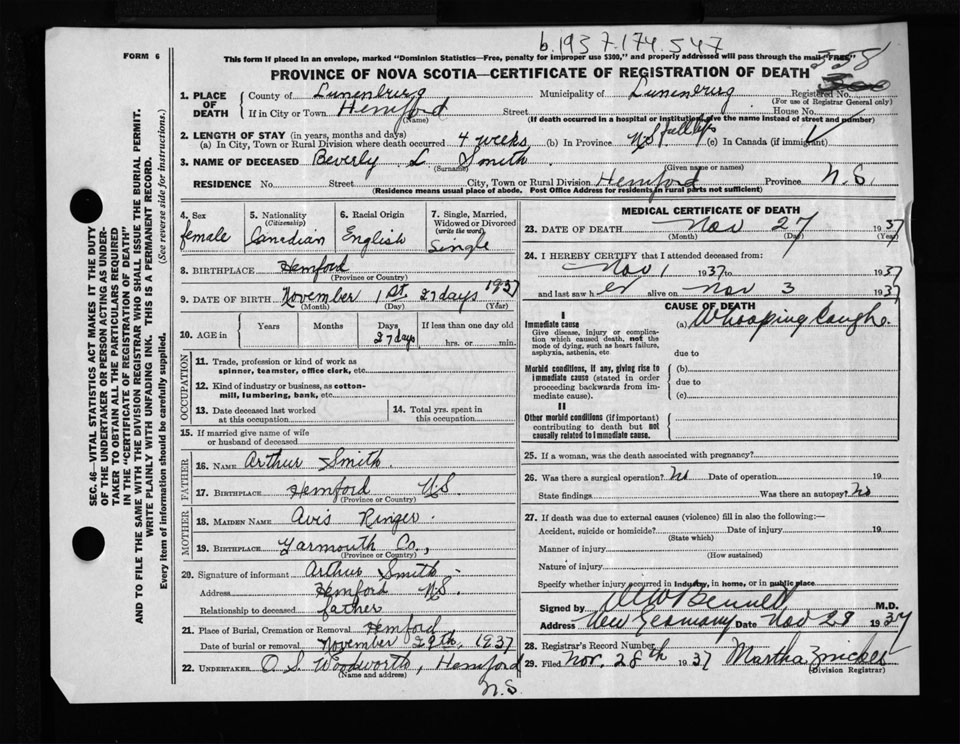 b.1937.174.547
FORM 6
This form if placed in an envelope, marked "Dominion Statistics—Free, penalty for improper use $300," and properly addressed will pass through the mail "FREE"
358
PROVINCE OF NOVA SCOTIA—CERTIFICATE OF REGISTRATION OF DEATH
1. PLACE OF DEATH
County of Lunenburg Municipality of Lunenburg Registered No.
(For use of Registrar General only)
If in City or Town Hemford Street House No.
(Name) (If death occurred in a hospital or institution, give the name instead of street and number)
2. LENGTH OF STAY (in years, months and days)
(a) In City, Town or Rural Division where death occurred 4 weeks (b) In Province N.S. (c) In Canada (if immigrant)
3. NAME OF DECEASED Beverly L Smith
(Surname) (Given name or names)
RESIDENCE No. Street City, Town or Rural Division Hemford Province N.S.
(Residence means usual place of abode. Post Office Address for residents in rural parts not sufficient)
4. Sex
female
5. Nationality
(Citizenship)
Canadian
6. Racial Origin
English
7. Single, Married, Widowed or Divorced
(write the word)
Single
8. BIRTHPLACE Hemford
(Province or Country)
9. DATE OF BIRTH November 1st 27 days 1937
(Month) (Day) (Year)
10. AGE in
Years Months Days If less than one day old
27 days hrs. or min.
OCCUPATION
11. Trade, profession or kind of work as
spinner, teamster, office clerk, etc.
12. Kind of industry or business, as cotton-
mill, lumbering, bank, etc.
13. Date deceased last worked
at this occupation
14. Total yrs. spent in
this occupation
15. If married give name of wife
or husband of deceased
FATHER
16. NAME Arthur Smith.
17. BIRTHPLACE Hemford N.S.
(Province or Country)
MOTHER
18. MAIDEN NAME Avis Ringer.
19. BIRTHPLACE Yarmouth Co.,
(Province or Country)
20. Signature of informant Arthur Smith
Address Hemford N.S.
Relationship to deceased father
21. Place of Burial, Cremation or Removal Hemford
Date of burial or removal November 29th, 1937
22. UNDERTAKER O. S. Woodworth, Hemford
(Name and address)
N.S.
MEDICAL CERTIFICATE OF DEATH
23. DATE OF DEATH Nov 27 1937
(Month) (Day) (Year)
24. I HEREBY CERTIFY that I attended deceased from:
Nov 1 1937 to 1937
and last saw h er alive on Nov 3 1937
CAUSE OF DEATH
I
Immediate cause
Give disease, injury or complica-
tion which caused death, not the
mode of dying, such as heart failure,
asphyxia, asthenia, etc
(a) Whooping Cough.
due to
Morbid conditions, if any, giving rise to
immediate cause (stated in order
proceeding backwards from im-
mediate cause).
(b)
due to
(c)
II
Other morbid conditions (if important)
contributing to death but not
causally related to immediate cause.
25. If a woman, was the death associated with pregnancy?
26. Was there a surgical operation? No Date of operation 19
State findings Was there an autopsy? No
27. If death was due to external causes (violence) fill in also the following:—
Accident, suicide or homicide? Date of injury 19
(State which)
Manner of injury
(How sustained)
Nature of injury
Specify whether injury occurred in industry, in home, or in public place
Signed by Bennett M.D.
Address New Germany Date Nov 28 1937
28. Registrar's Record Number
29. Filed Nov. 28th 1937 Martha Zwicker
(Division Registrar)
SEC. 46—VITAL STATISTICS ACT MAKES IT THE DUTY
OF THE UNDERTAKER OR PERSON ACTING AS UNDER-
TAKER TO OBTAIN ALL THE PARTICULARS REQUIRED
IN THE "CERTIFICATE OF REGISTRATION OF DEATH"
AND TO FILE THE SAME WITH THE DIVISION REGISTRAR WHO SHALL ISSUE THE BURIAL PERMIT.
WRITE PLAINLY WITH UNFADING INK. THIS IS A PERMANENT RECORD.
Every item of information should be carefully supplied. (See reverse side for instructions.)